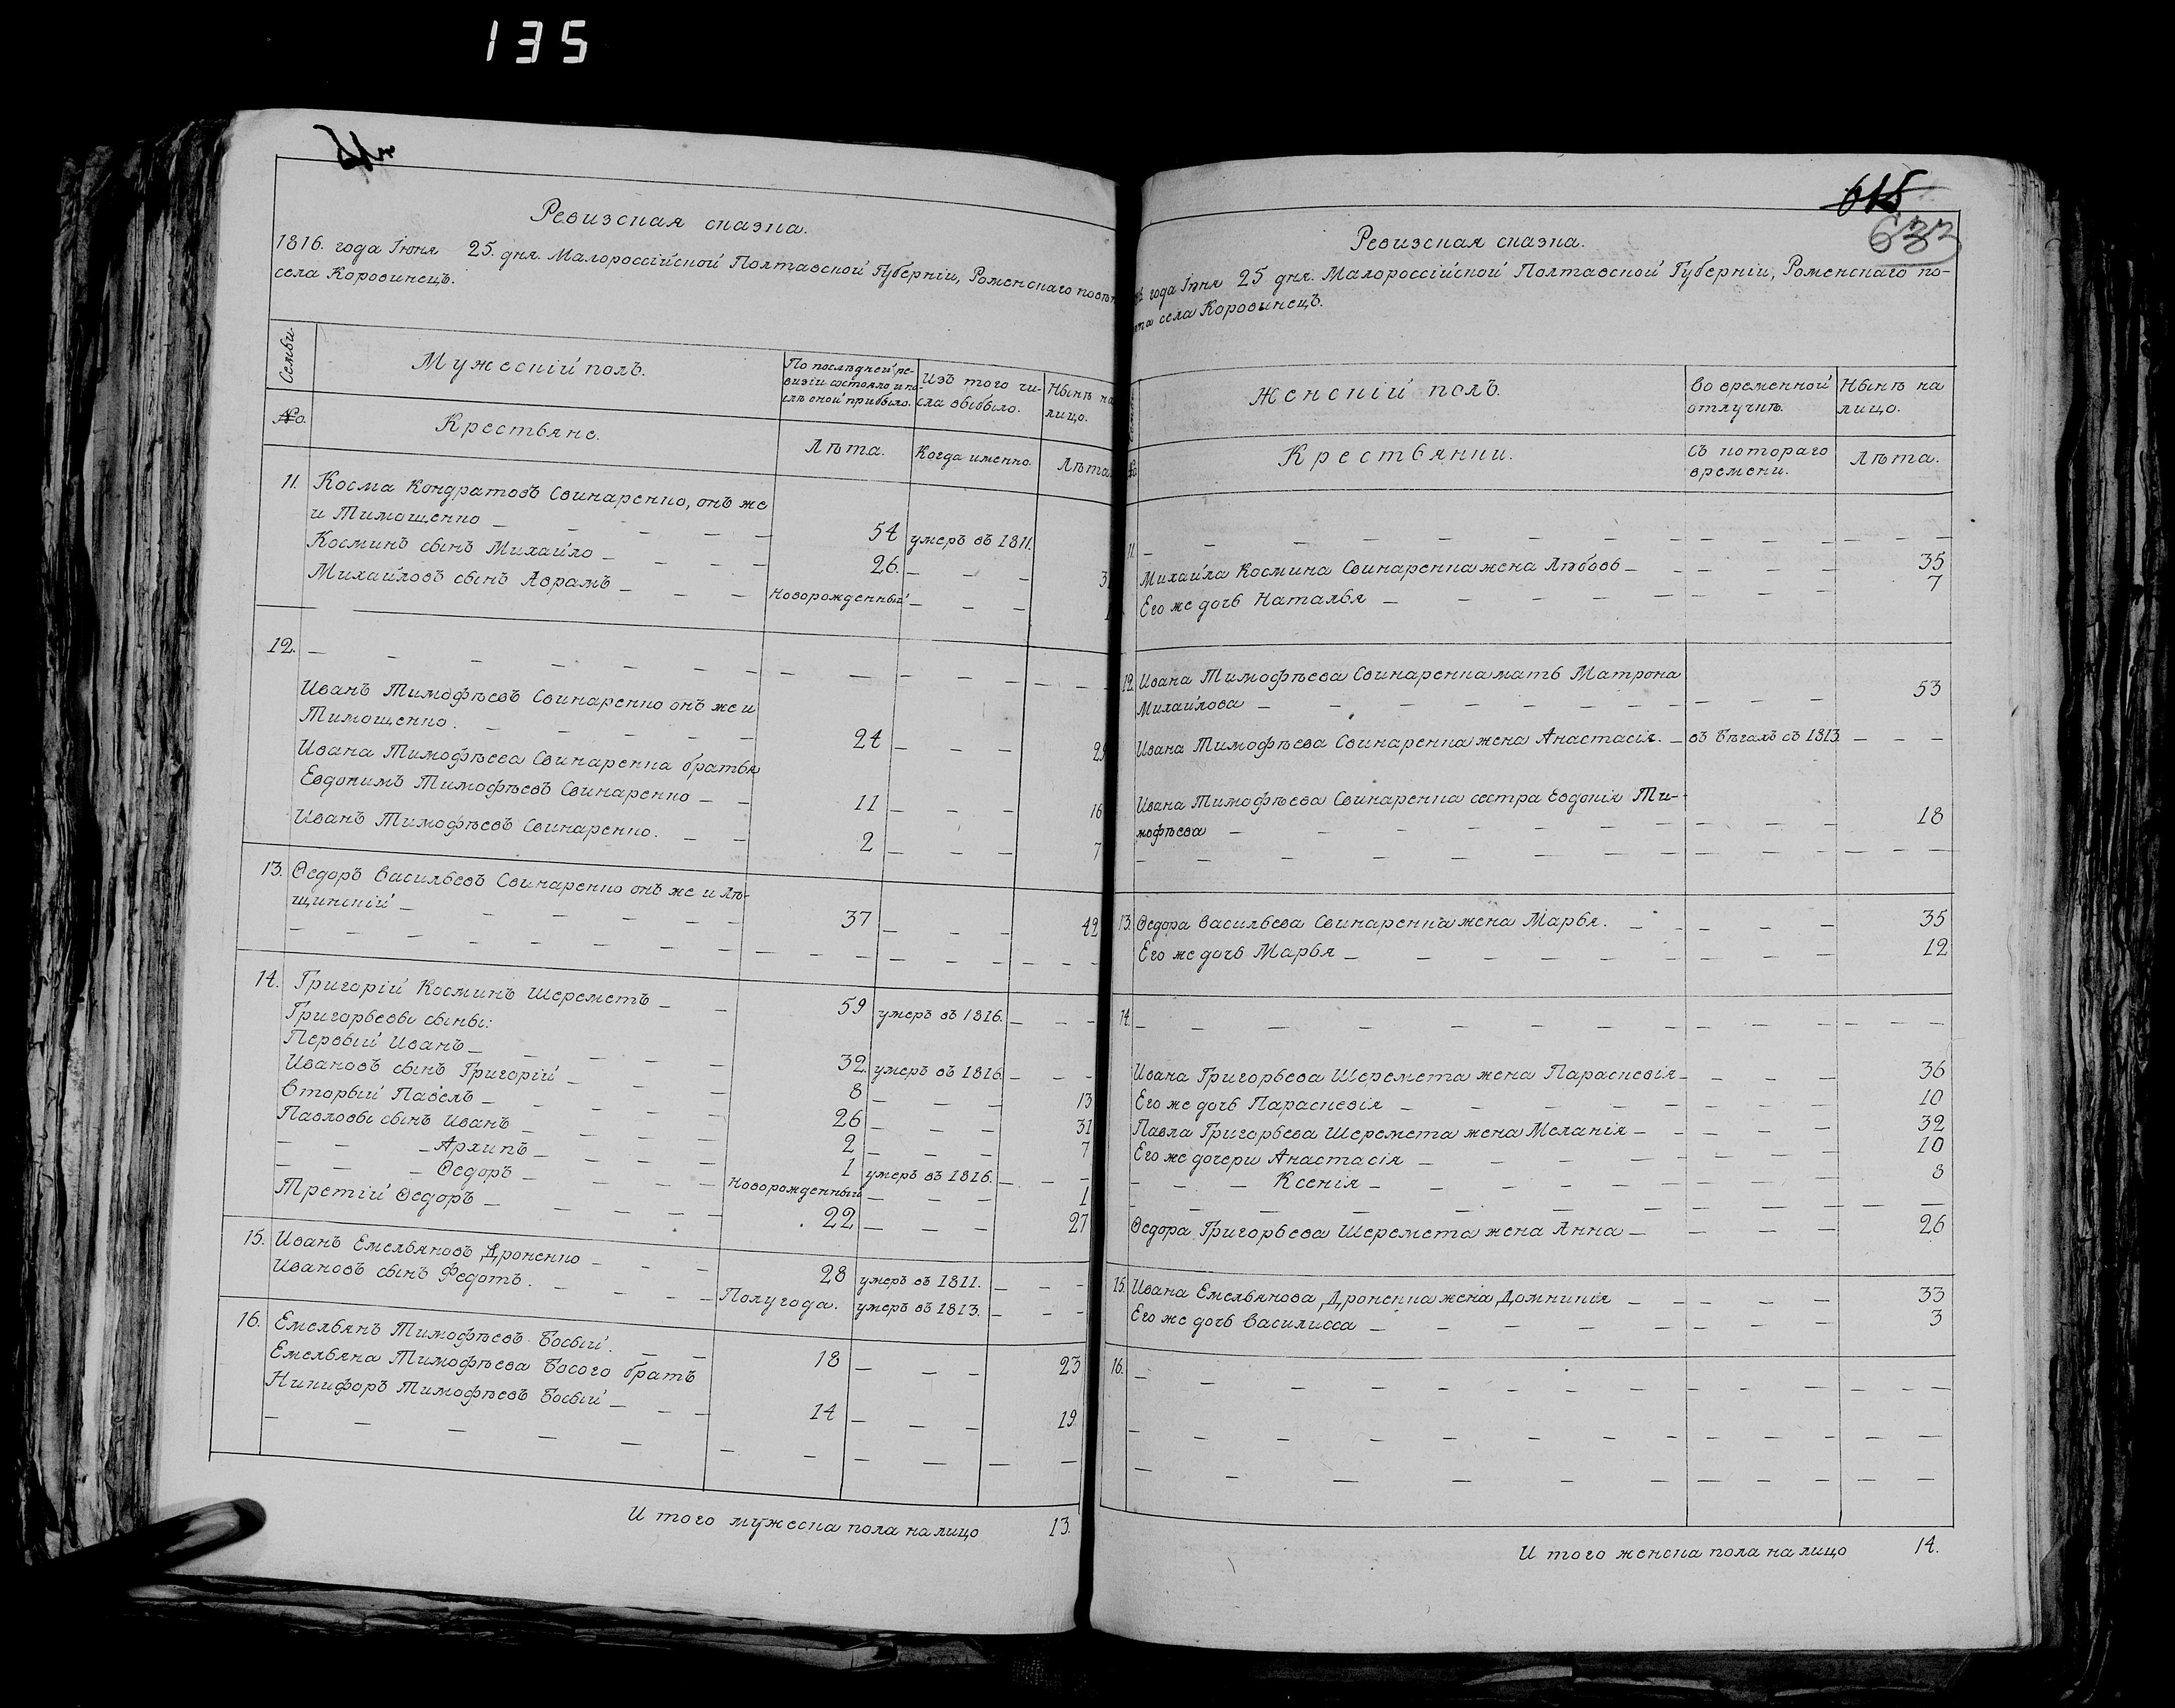 135
615
633
Ревизская сказка.
1816. года Іюня 25. дня. Малороссійской Полтавской Губерніи, Роменского повѣ
села Коровинецъ.
Семьи.
Мужескій полъ.
По послѣдней ре-
визіи состояло и по-
слѣ оной прибыло.
Изъ того чи-
сла выбыло.
Нынѣ на
лицо.
№.
Крестьяне.
Лѣта.
Когда именно.
Лѣта
11. Косма Кондратовъ Свинаренко, онъ же
и Тимошенко — 54 умеръ въ 1811.
Косминъ сынъ Михайло — 26. —
Михайловъ сынъ Аврамъ — Новорожденный —
12. —
Иванъ Тимофѣевъ Свинаренко онъ же и
Тимошенко. — 24 — 29
Ивана Тимофѣева Свинаренка братья
Евдокимъ Тимофѣевъ Свинаренко — 11 — 16
Иванъ Тимофѣевъ Свинаренко. — 2 — 7
13. Ѳедоръ Васильевъ Свинаренко онъ же и Лѣ-
щинскій — 37 — 42
14. Григорій Косминъ Шереметъ — 59 умеръ въ 1816. —
Григорьевы сыны:
Первый Иванъ — 32. умеръ въ 1816. —
Ивановъ сынъ Григорій — 8 — 13
Вторый Павелъ — 26 — 31
Павловы сынъ Иванъ — 2 — 7
— Архипъ — 1 умеръ въ 1816. —
— Ѳедоръ — Новорожденный — 1
Третій Ѳедоръ — 22 — 27
15. Иванъ Емельяновъ Дроненко — 28 умеръ въ 1811. —
Ивановъ сынъ Федотъ. — Полугода. умеръ въ 1813. —
16. Емельянъ Тимофѣевъ Босый. — 18 — 23
Емельяна Тимофѣева Босого братъ
Никифоръ Тимофѣевъ Босый — 14 — 19
И того мужеска пола на лицо 13.
Ревизская сказка.
года Іюня 25 дня. Малороссійской Полтавской Губерніи, Роменскаго по-
та села Коровинецъ.
Женскій полъ.
Во временной
отлучкѣ.
Нынѣ на
лицо.
Крестьянки.
Съ котораго
времени.
Лѣта.
11. —
Михайла Космина Свинаренка жена Любовь — 35
Его же дочь Наталья — 7
12. Ивана Тимофѣева Свинаренка мать Матрона
Михайлова — 53
Ивана Тимофѣева Свинаренка жена Анастасія. — въ бѣгахъ съ 1813. —
Ивана Тимофѣева Свинаренка сестра Евдокія Ти-
мофѣева — 18
13. Ѳедора Васильева Свинаренка жена Марья. — 35
Его же дочь Марья — 12
14. —
Ивана Григорьева Шеремета жена Параскевія — 36
Его же дочь Параскевія — 10
Павла Григорьева Шеремета жена Меланія — 32
Его же дочери Анастасія — 10
— Ксенія — 8
Ѳедора Григорьева Шеремета жена Анна — 26
15. Ивана Емельянова Дроненка жена Домникія — 33
Его же дочь Василисса — 3
16. —
И того женска пола на лицо 14.